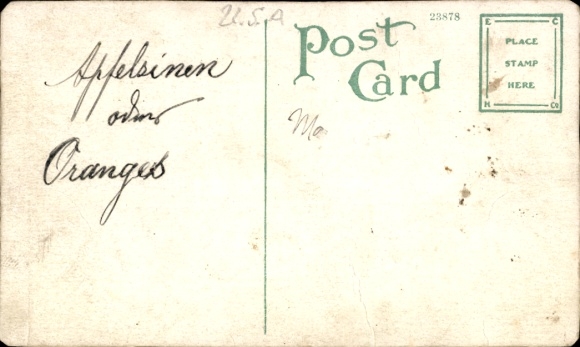 U.S.A
23878
Post
Card
E C
PLACE
STAMP
HERE
H Co
Apfelsinen
oder
Oranges
Mo